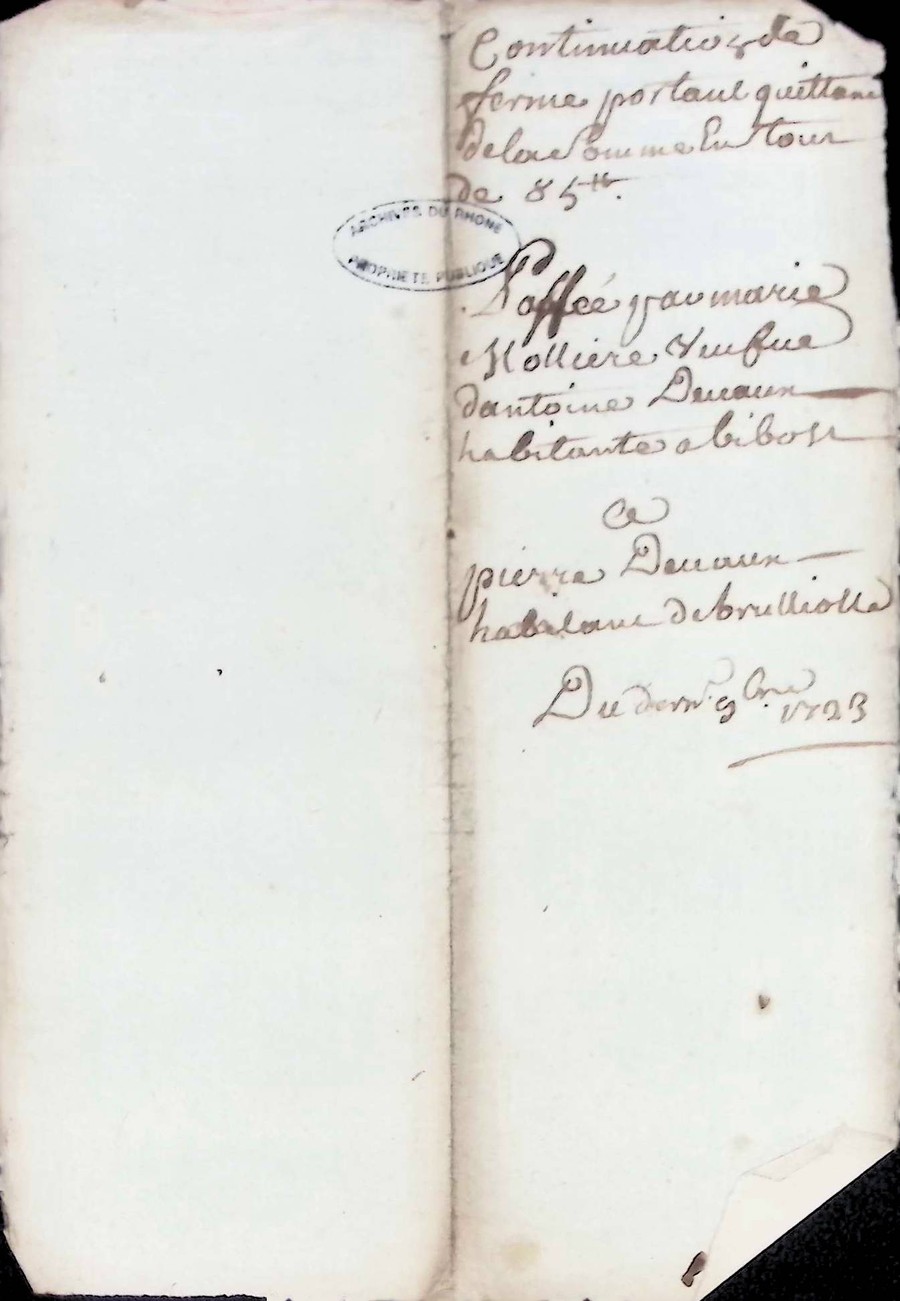 Continuation de
ferme portant quittance
de la Somme En tout
de 85 ₶.
ARCHIVES DU RHONE
PROPRIETE PUBLIQUE
Passée par marie
Molliere Veufve
dantoine Devaux
habitante a bibost
A
pierre Devaux
habitant de brulliolle
Du dern.r 9bre 1723